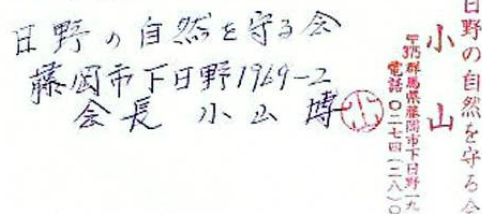 日野の自然を守る会
藤岡市下日野1969-2
会長 小山 博
日野の自然を守る会
小山
〒375 群馬県藤岡市下日野一九
電話 〇二七四(二八)〇